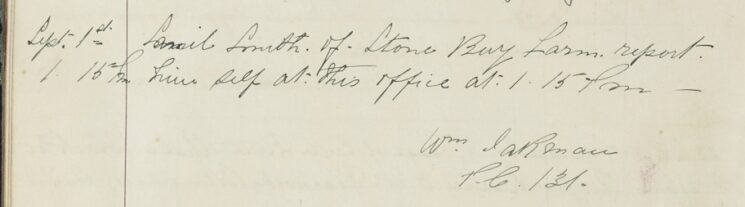 Sept. 1st Samil Smith. of. Stone Buy Farm. report.
1. 15 Pm him self at. this office at. 1. 15 Pm —
Wm
P.C. 131.